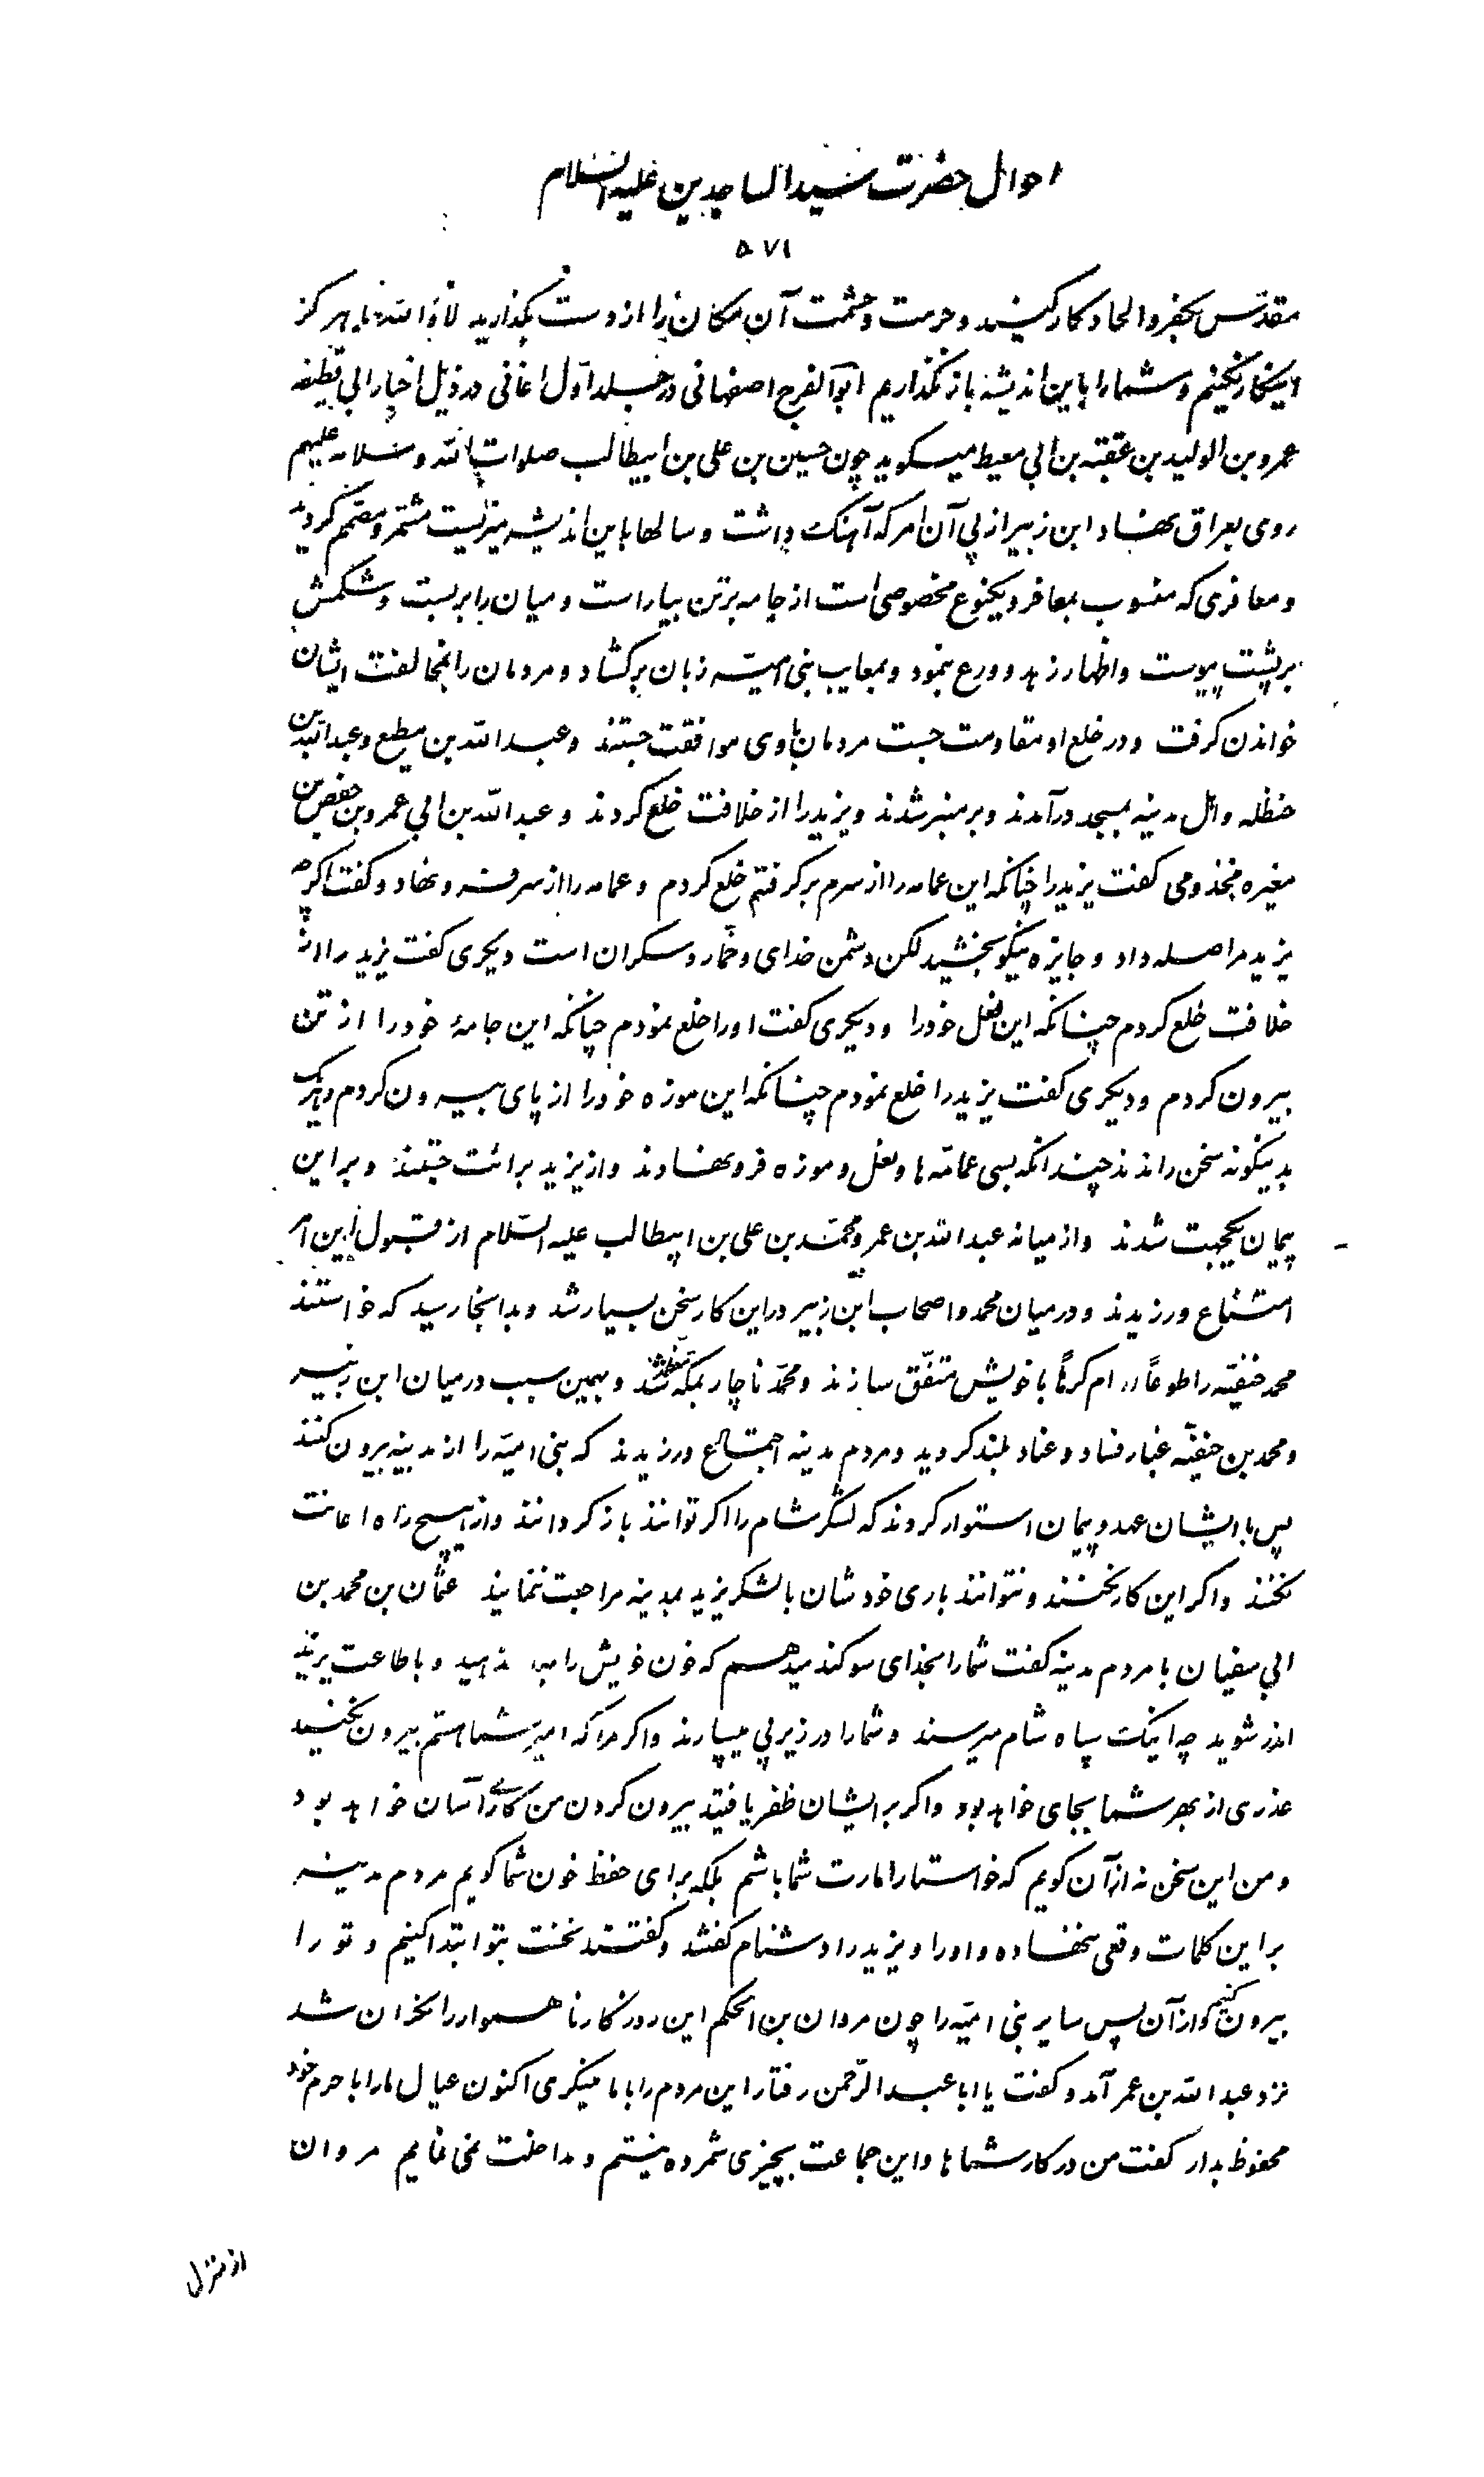 احوال حضرت سید الساجدین علیه السلام
۵۷۱
مقدّس بکفر و الحاد کار کنید و حرمت و حشمت آن مکان را از دست بگذارید لا والله ما هرگز
اینکار نکنیم و شما را باین اندیشه باز نگذاریم ابو الفرج اصفهانی در جلد اوّل اغانی در ذیل اخبار ابی قطیفه
عمرو بن الولید بن عقبة بن ابی معیط میگوید چون حسین بن علی بن ابیطالب صلوات الله و سلامه علیهم
روی بعراق نهاد ابن زبیر از پی آن امر که آهنگ داشت و سالها باین اندیشه میزیست مشمّر و مصمّم گردید
و معافری که منسوب بمعافر و یکنوع مخصوصی است از جامه بر تن بیاراست و میان را بربست و شکمش
بر پشت پیوست و اظهار زهد و ورع بنمود و بمعایب بنی امیّه زبان برگشاد و مردمان را بمخالفت ایشان
خواندن گرفت و در خلع او مقاومت جست مردمان با وی موافقت جستند و عبد الله بن مطیع و عبد الله بن
حنظله و اهل مدینه بمسجد درآمدند و بر منبر شدند و یزید را از خلافت خلع کردند و عبد الله بن ابی عمرو بن حفص بن
مغیره مخذومی گفت یزید را چنانکه این عمامه را از سرم برگرفتم خلع کردم و عمامه را از سر فرو نهاد و گفت اگرچه
یزید مرا صله داد و جایزه نیکو بخشید لکن دشمن خدای و خمّار و سکران است دیگری گفت یزید را از
خلافت خلع کردم چنانکه این نعل خود را و دیگری گفت او را خلع نمودم چنانکه این جامهٔ خود را از تن
بیرون کردم و دیگری گفت یزید را خلع نمودم چنانکه این موزه خود را از پای بیرون کردم و هریک
بدینگونه سخن راندند چندانکه بسی عمامّه ها و نعل و موزه فرو نهادند و از یزید برائت جستند و بر این
پیمان یکجهت شدند و از میانه عبد الله بن عمر و محمّد بن علی بن ابیطالب علیه السّلام از قبول این امر
امتناع ورزیدند و در میان محمد و اصحاب ابن زبیر در این کار سخن بسیار شد و بدانجا رسید که خواستند
محمد حنفیّه را طوعاً ام کرهاً با خویش متفّق سازند و محمّد ناچار بمکّه شد و بهمین سبب در میان ابن زبیر
و محمد بن حنفیّه غبار فساد و عناد بلند گردید و مردم مدینه اجتماع ورزیدند که بنی امیّه را از مدینه بیرون کنند
پس با ایشان عهد و پیمان استوار کردند که لشکر شام را اگر توانند باز گردانند و از هیچ راه اعانت
نکنند و اگر این کار نکنند و نتوانند باری خودشان با لشکر یزید بمدینه مراجعت ننمایند عثمان بن محمد بن
ابی سفیان با مردم مدینه گفت شما را بخدای سوگند میدهم که خون خویش را بهدر ندهید و باطاعت یزید
اندر شوید چه اینک سپاه شام میرسند و شما را در زیر پی میسپارند و اگر مرا که امیر شما هستم بیرون نکنید
عذری از بهر شما بجای خواهد بود و اگر بر ایشان ظفر یافتید بیرون کردن من کاری آسان خواهد بود
و من این سخن نه از آن گویم که خواستار امارت شما باشم بلکه برای حفظ خون شما گویم مردم مدینه
بر این کلمات وقعی ننهاده و او را و یزید را دشنام گفتند و گفتند نخست بتو ابتدا کنیم و تو را
بیرون کنیم و از آن پس سایر بنی امیّه را چون مروان بن الحکم این روزگار ناهموار را نگران شد
نزد عبد الله بن عمر آمد و گفت یا ابا عبد الرّحمن رفتار این مردم را با ما مینگری اکنون عیال ما را با حرم خود
محفوظ بدار گفت من در کار شما ها و این جماعت بچیزی شمرده نیستم و مداخلت نمی نمایم مروان
از منزل